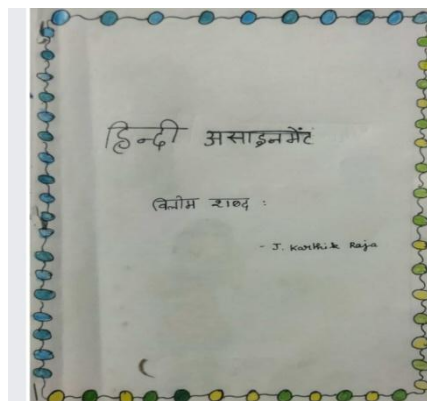 हिन्दी असाइनमेंट
विलोम शब्द :
- J. Karthik Raja